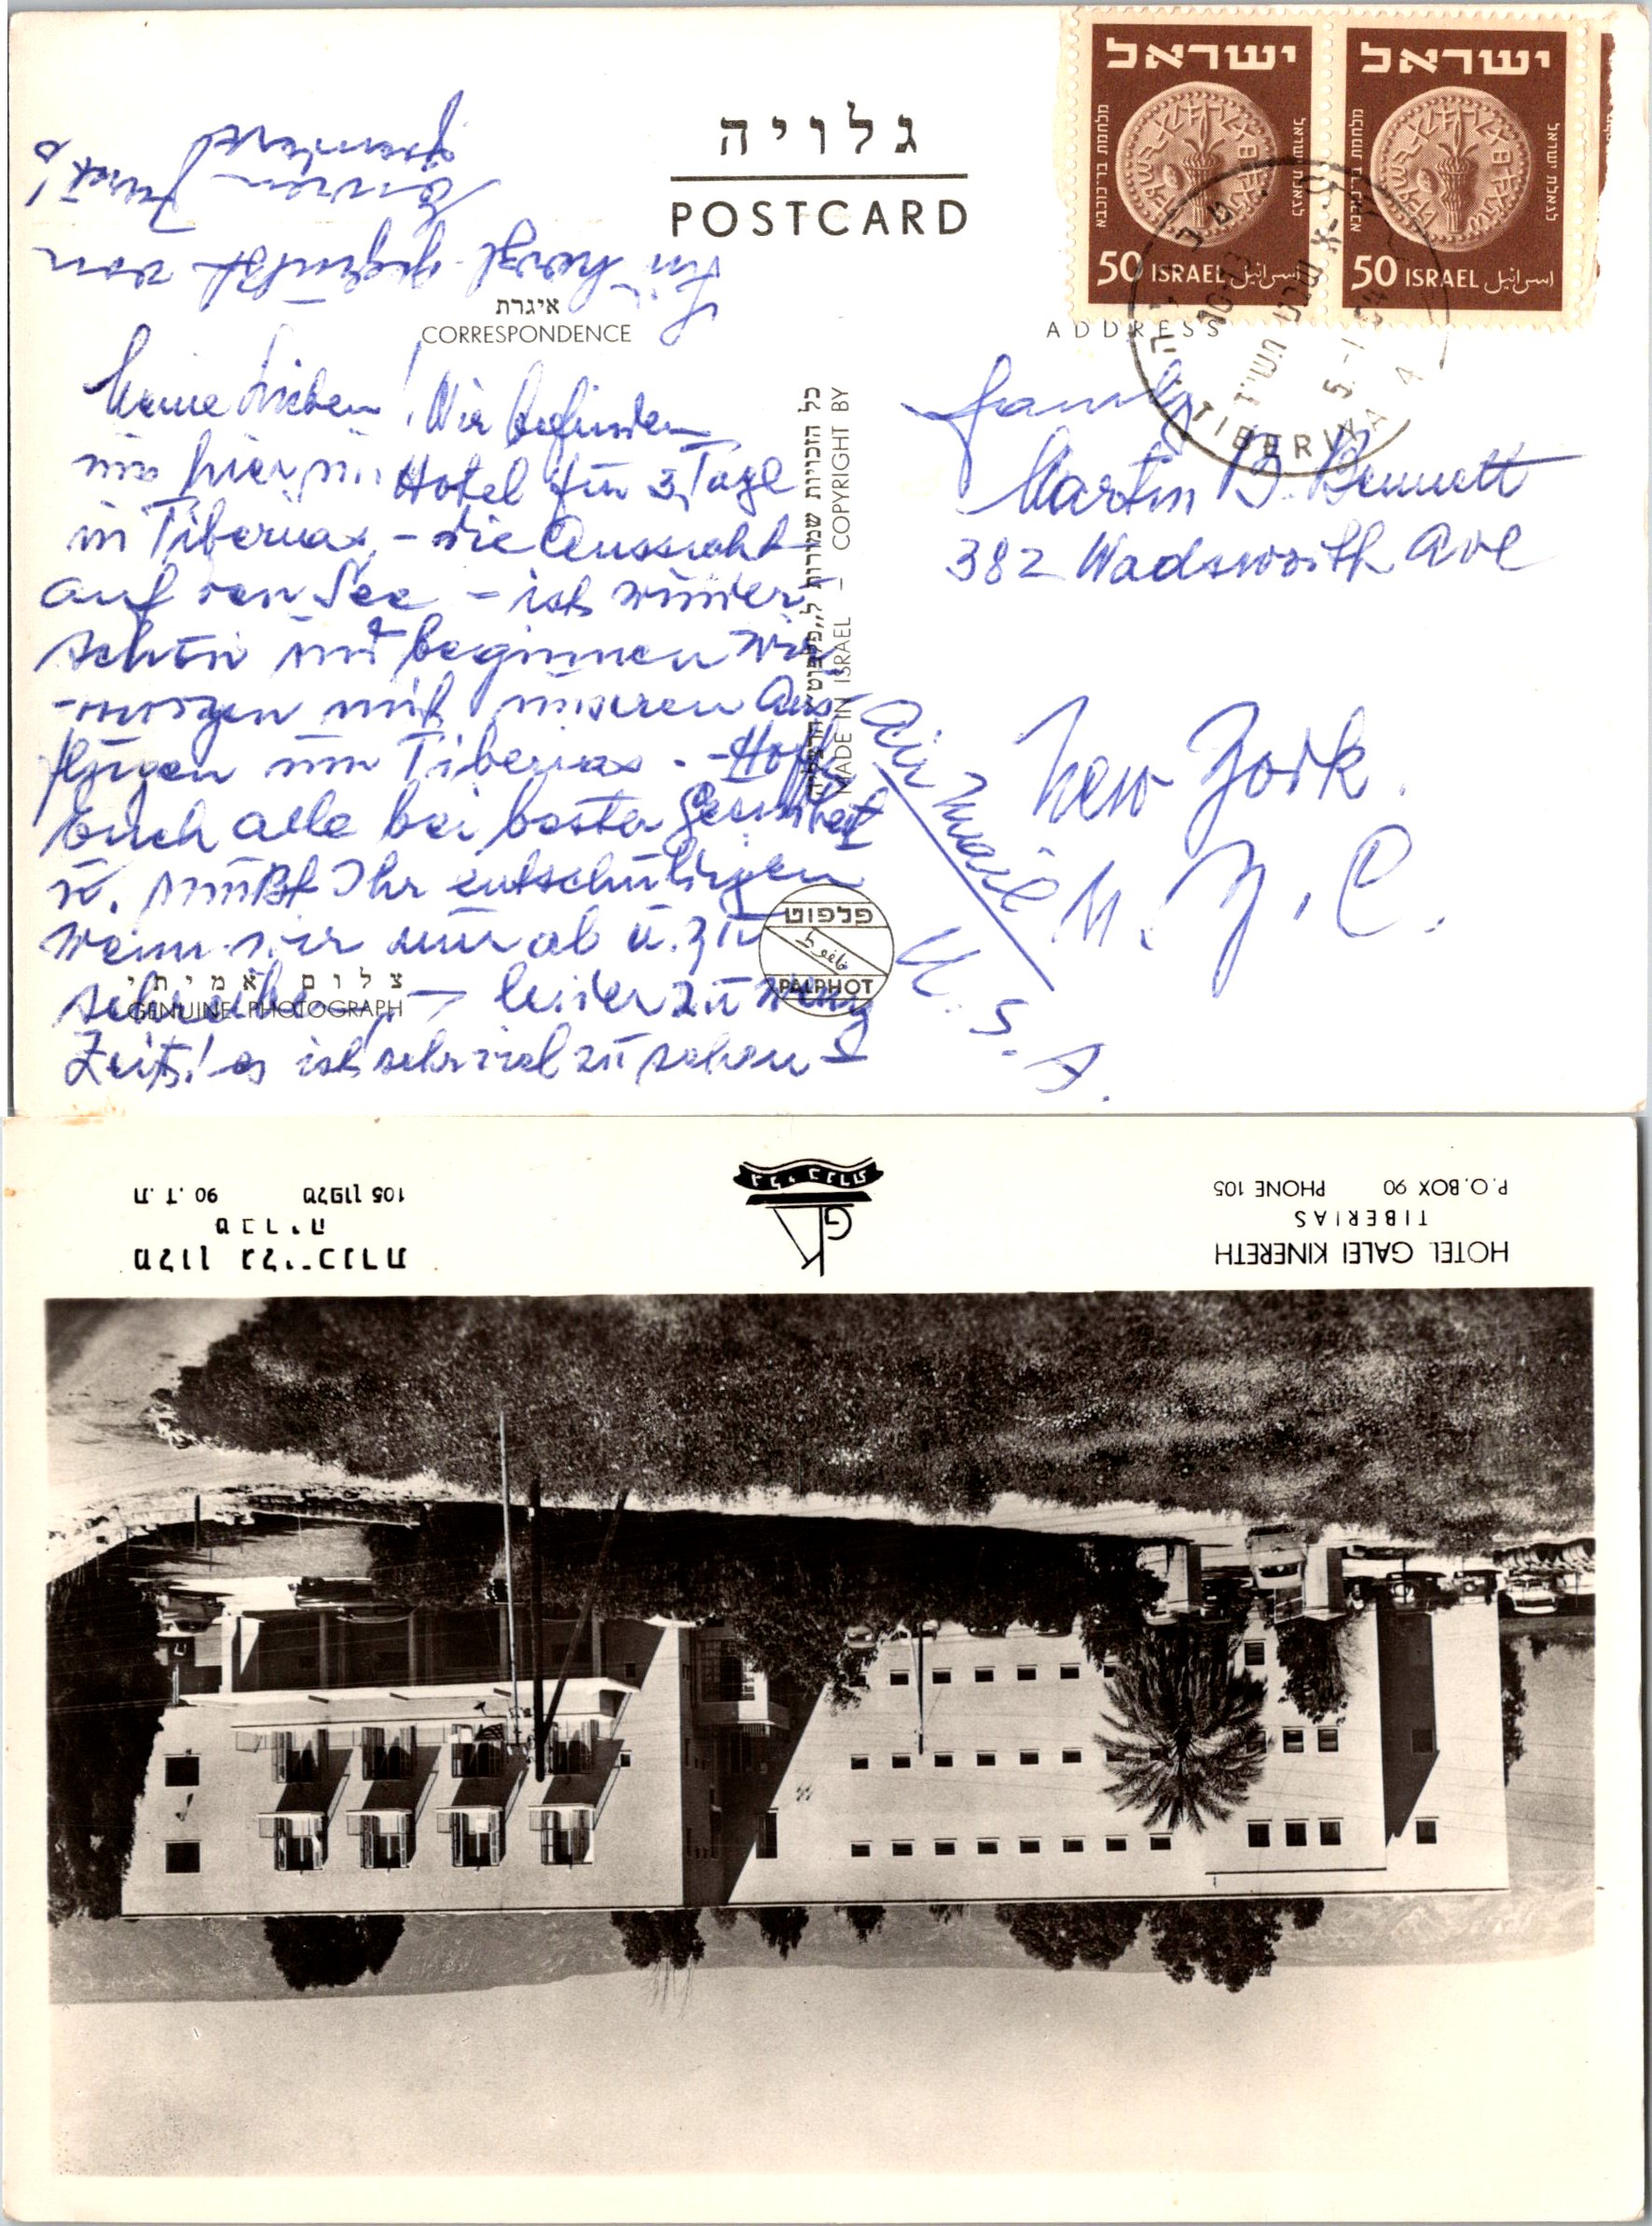 גלויה
POSTCARD
ישראל
50 ISRAEL اسرائيل
ישראל
50 ISRAEL اسرائيل
לגאולת ישראל
לגאולת ישראל
TIBERIYA
4
איגרת
CORRESPONDENCE
ADDRESS
Meine Lieben! Wir befinden
uns hier im Hotel für 3 Tage
in Tiberias, – die Aussicht
auf den See – ist wunder
schön und beginnen wir
morgen mit unseren Aus-
flügen um Tiberias. – Hoffe
Euch alle bei bester Gesundheit
u. müßt Ihr entschuldigen
wenn wir nur ab u. zu
schreiben – leider zu wenig
Zeit! es ist sehr viel zu sehen
Seid herzl. gegrüßt von
Euren
Family
Martin B. Bennett
382 Wadsworth Ave
New York.
N.Y.C.
U.S.A.
Air Mail
כל הזכויות שמורות ל„פלפוט"
MADE IN ISRAEL – COPYRIGHT BY
פלפוט
PALPHOT
צלום אמיתי
GENUINE PHOTOGRAPH
HOTEL GALEI KINERETH
TIBERIAS
P.O.BOX 90 PHONE 105
GK
מלון גלי-כנרת
טבריה
ת.ד. 90 טלפון 105